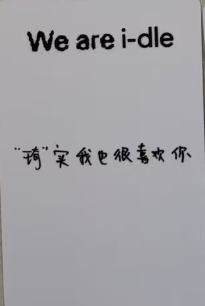 We are i-dle
"琦"实我也很喜欢你